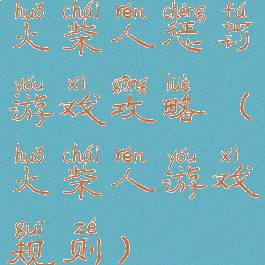 huǒ chái rén chéng fá
火柴人惩罚
yóu xì gōng lüè
游戏攻略（
huǒ chái rén yóu xì
火柴人游戏
guī zé
规则）